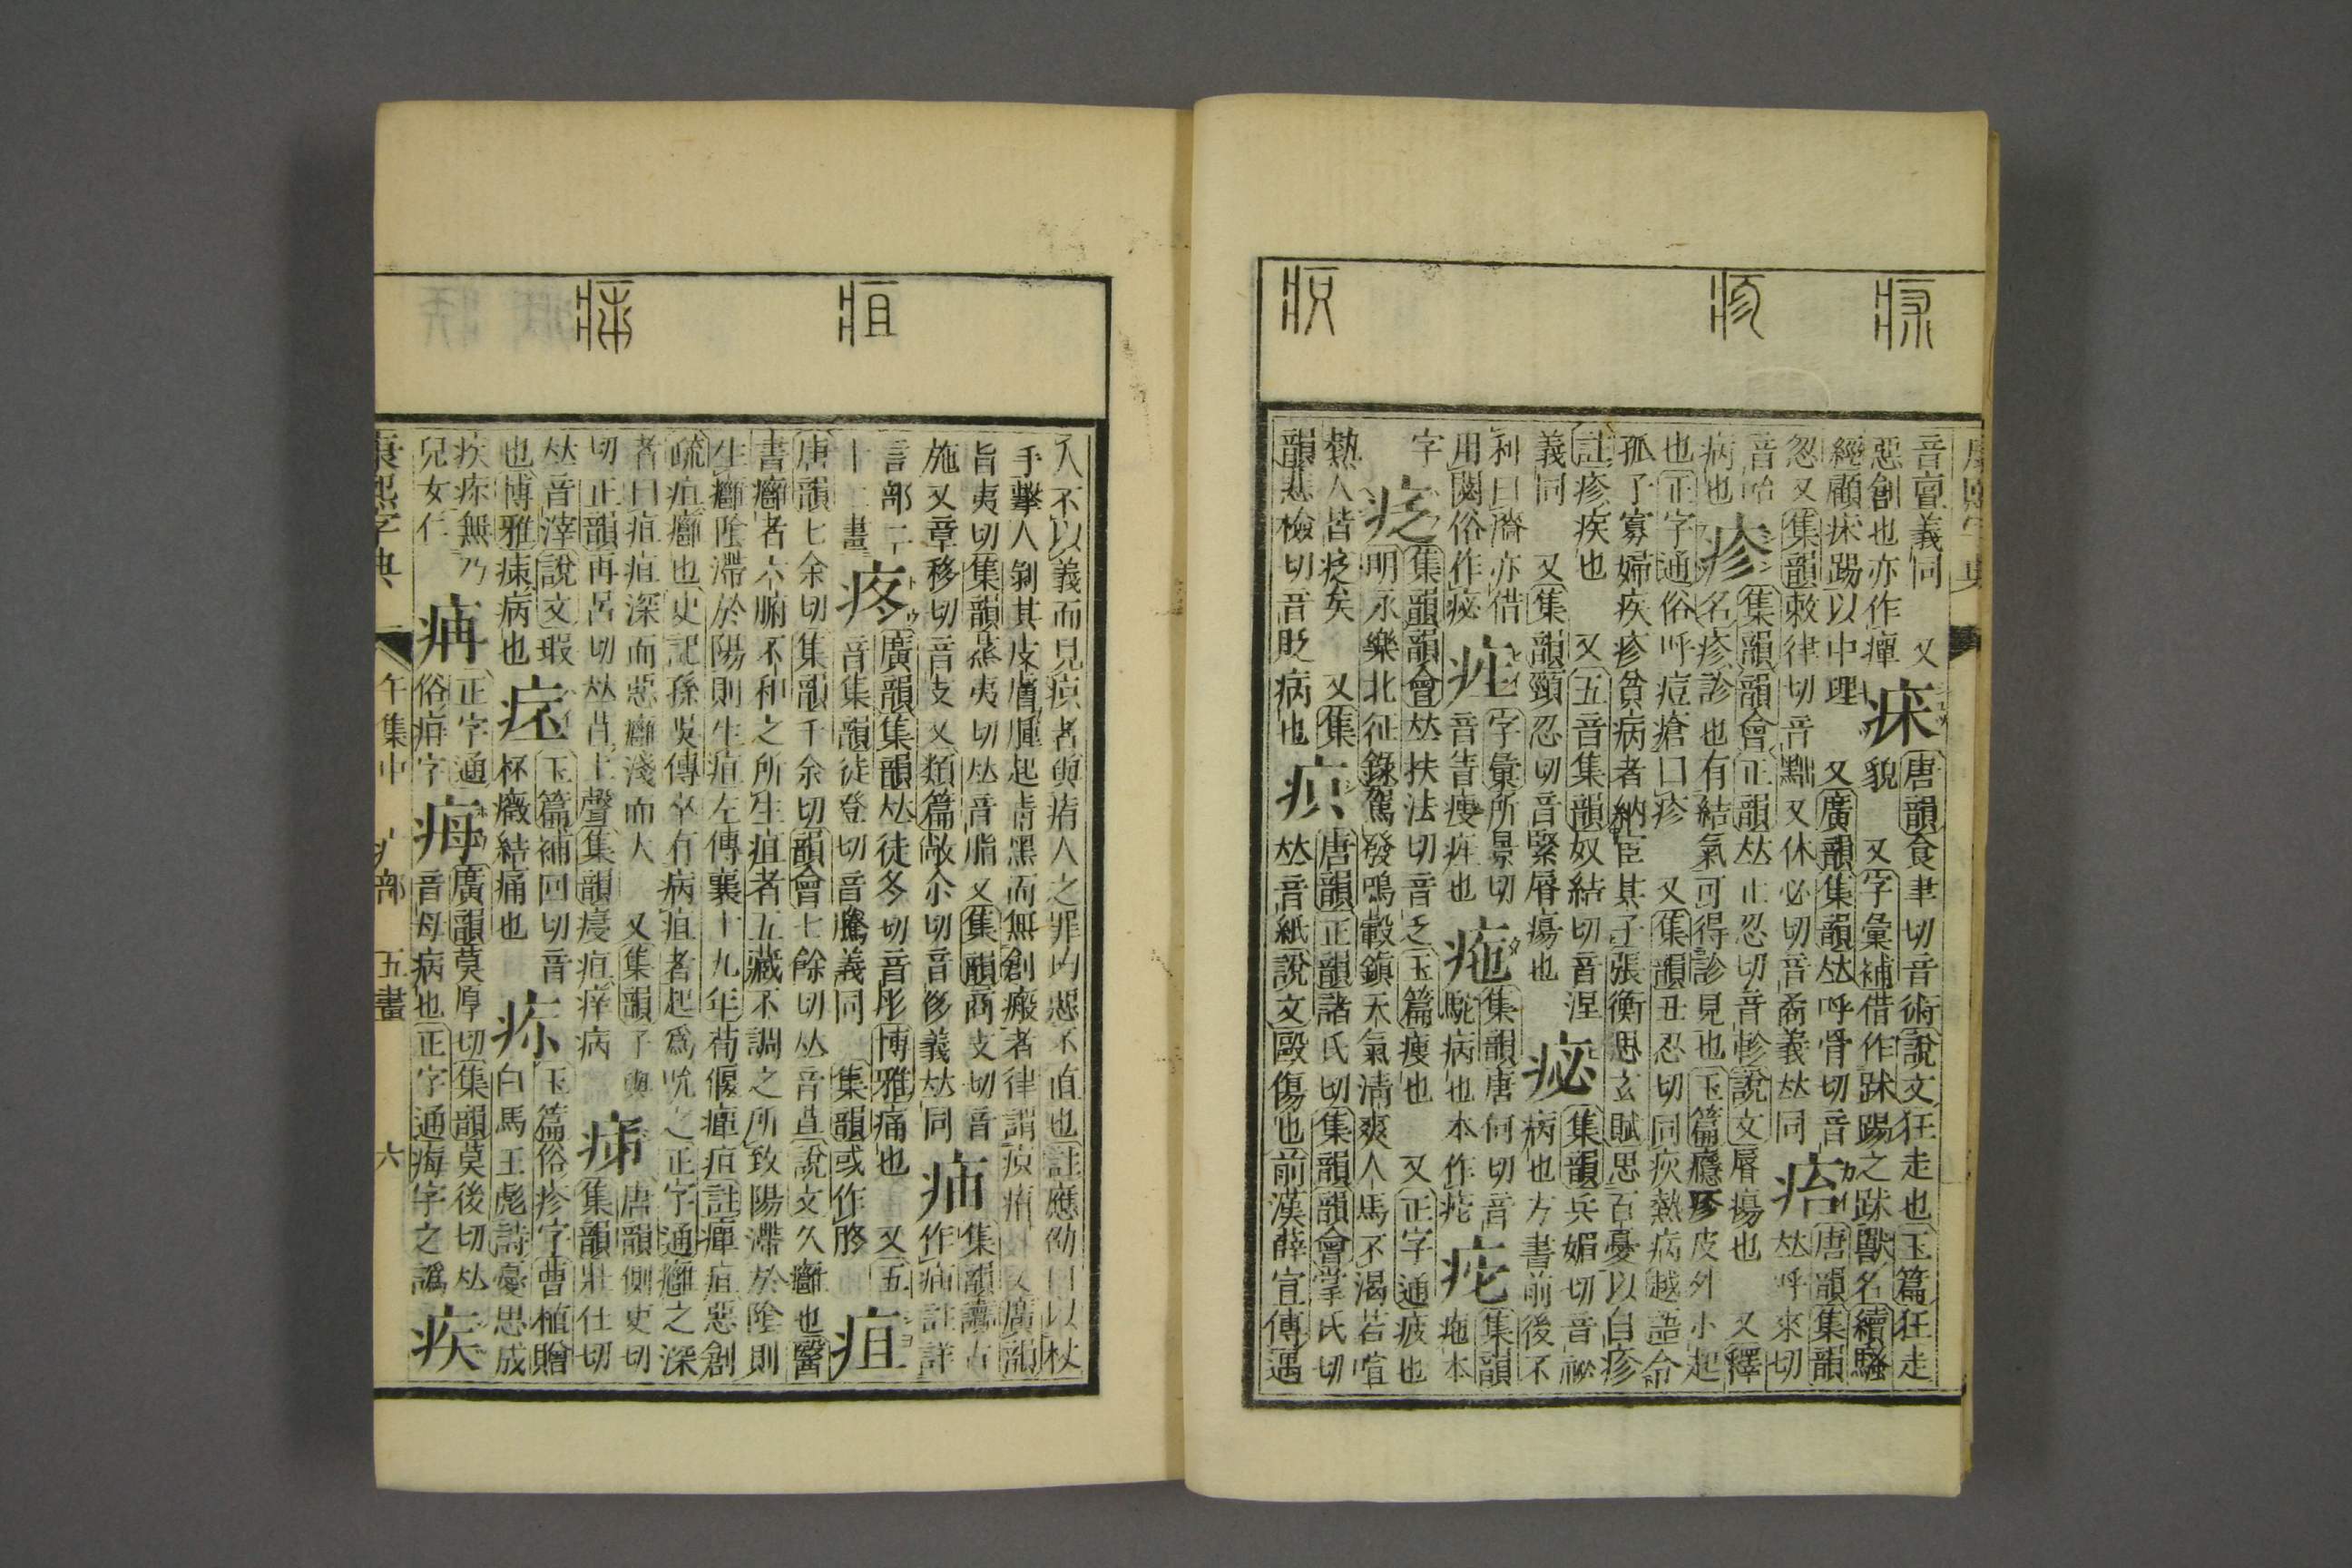 音亶義同 又
惡創也亦作癉
㾁
唐韻食聿切音術說文狂走也玉篇狂走
貌 又字彙補借作踈踢之踈獸名續騷
經顧㾁踢以中理 又廣韻集韻𠀤呼骨切音
忽又集韻敕律切音黜又休必切音矞義𠀤同
痁
唐韻集韻
𠀤呼來切
音咍
病也
疹
集韻韻會正韻𠀤止忍切音軫說文脣瘍也 又釋
名疹診也有結氣可得診見也玉篇癮疹皮外小起
也正字通俗呼痘瘡曰疹 又集韻丑忍切同疢熱病越語令
孤子寡婦疾疹貧病者納臣其子張衡思玄賦思百憂以自疹
註疹疾也 又五音集韻奴結切音涅
義同 又集韻頸忍切音緊脣瘍也
䀣
集韻兵媚切音祕
病也方書前後不
利曰㵶亦借
用閟俗作祕
㽵
字彙所景切
音眚瘦㽵也
㿇
集韻唐何切音
駝病也本作疕
㽱
集韻
㿇本
字
疺
集韻韻會𠀤扶法切音乏玉篇瘦也 又正字通疲也
明永樂北征錄駕發鳴轂鎮天氣清爽人馬不渴若喧
熱人皆疺矣 又集
韻悲檢切音貶病也
疻
唐韻正韻諸氏切集韻韻會掌氏切
𠀤音紙說文毆傷也前漢薛宣傳遇
人不以義而見疻者與痏人之罪均惡不直也註應劭曰以杖
手擊人剝其皮膚腫起靑黑而無創瘢者律謂疻痏 又廣韻
旨夷切集韻蒸夷切𠀤音脂又集韻商支切音
施又章移切音支又類篇敞尒切音侈義𠀤同
㾰
集韻讟古
作㾰註詳
言部二
十二畫
疼
廣韻集韻𠀤徒冬切音彤博雅痛也 又五
音集韻徒登切音騰義同 集韻或作胮
疽
唐韻七余切集韻千余切韻會七餘切𠀤音苴說文久癰也醫
書癰者六腑不和之所生疽者五藏不調之所致陽滯於陰則
生癰陰滯於陽則生疽左傳襄十九年荀偃癉疽註癉疽惡創
疏疽癰也史記孫吳傳卒有病疽者起爲吮之正字通癰之深
者曰疽疽深而惡癰淺而大 又集韻子與
切正韻再呂切𠀤苴上聲集韻痿疽痒病
㾊
唐韻側史切
集韻壯仕切
𠀤音滓說文瑕
也博雅㾊病也
㾦
玉篇補回切音
杯癥結痛也
㽱
玉篇俗疹字曹植贈
白馬王彪詩憂思成
疾㽱無乃
兒女仁
㾀
正字通
俗痟字
㾈
廣韻莫厚切集韻莫後切𠀤
音母病也正字通痗字之譌
疾
康熙字典 午集中 疒部 五畫 六